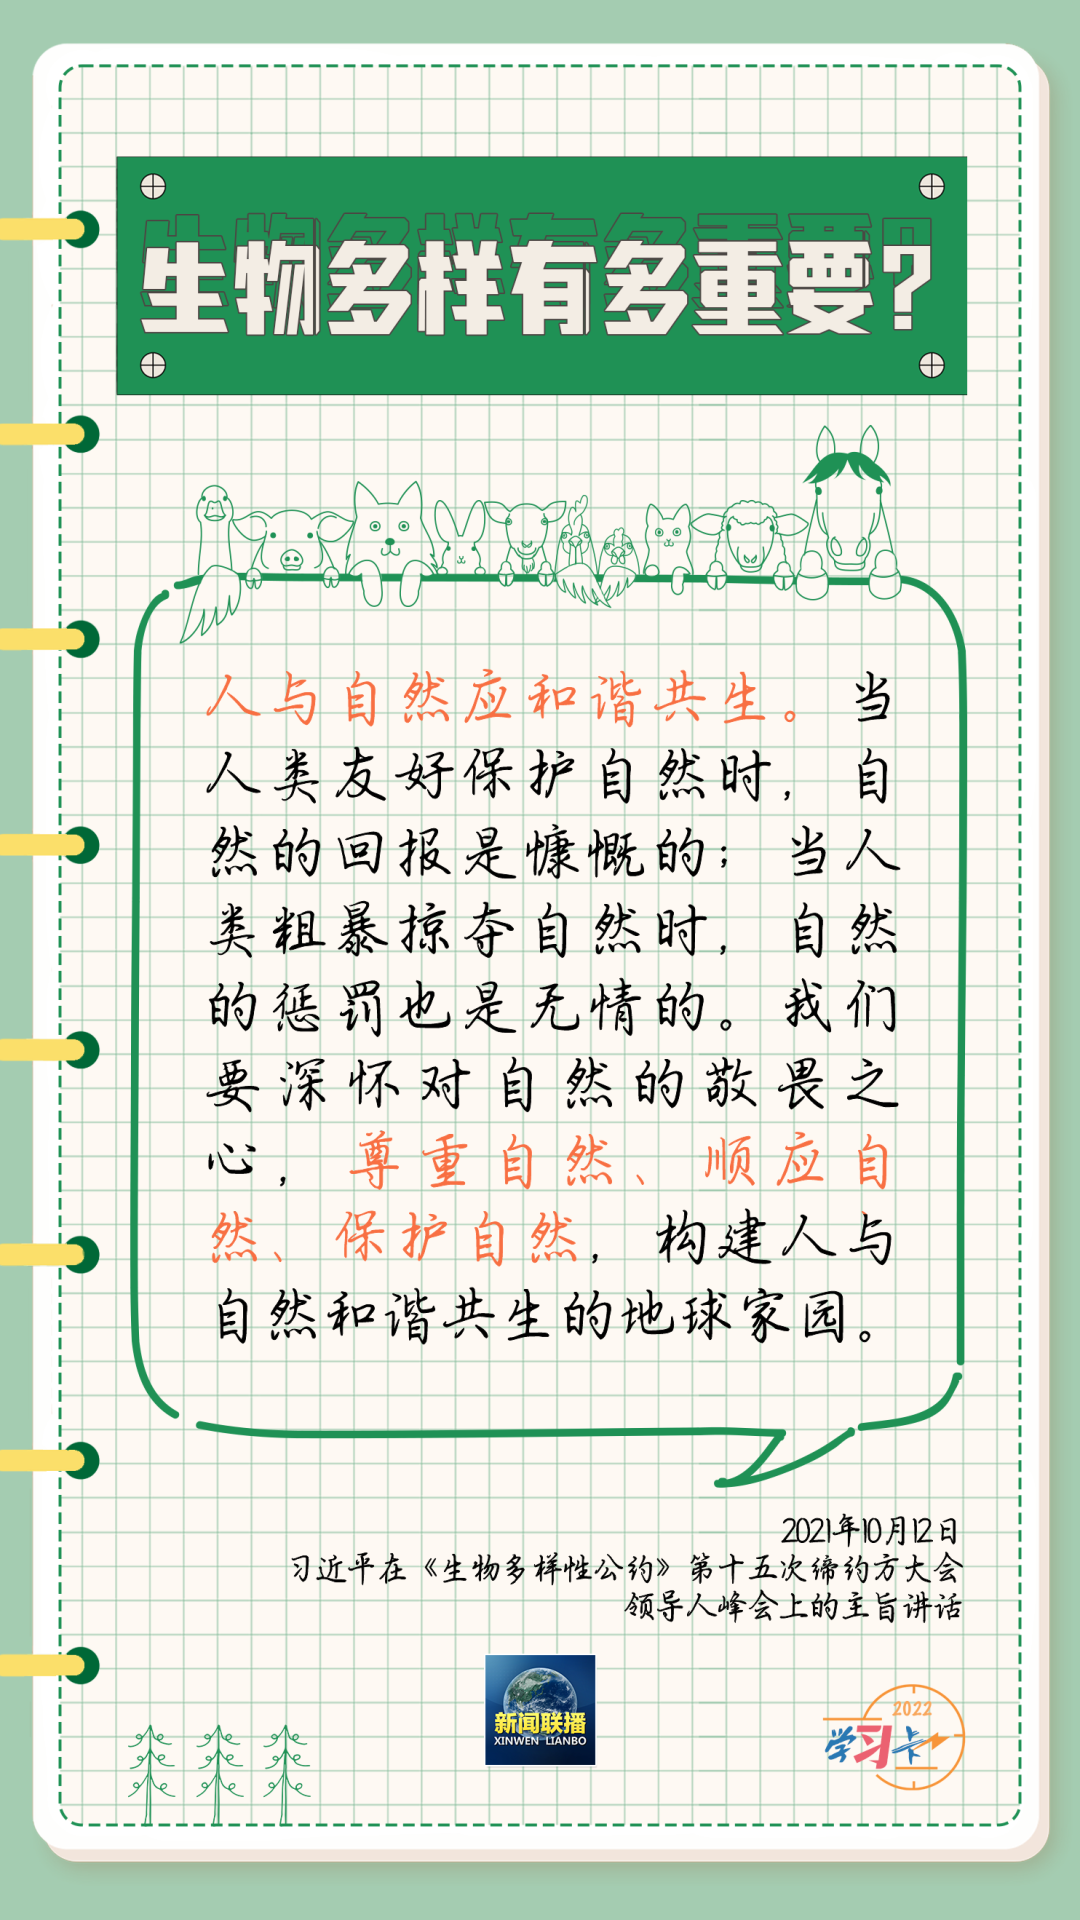 生物多样有多重要?
人与自然应和谐共生。当
人类友好保护自然时，自
然的回报是慷慨的；当人
类粗暴掠夺自然时，自然
的惩罚也是无情的。我们
要深怀对自然的敬畏之
心，尊重自然、顺应自
然、保护自然，构建人与
自然和谐共生的地球家园。
2021年10月12日
习近平在《生物多样性公约》第十五次缔约方大会
领导人峰会上的主旨讲话
新闻联播
XINWEN LIANBO
2022
学习卡